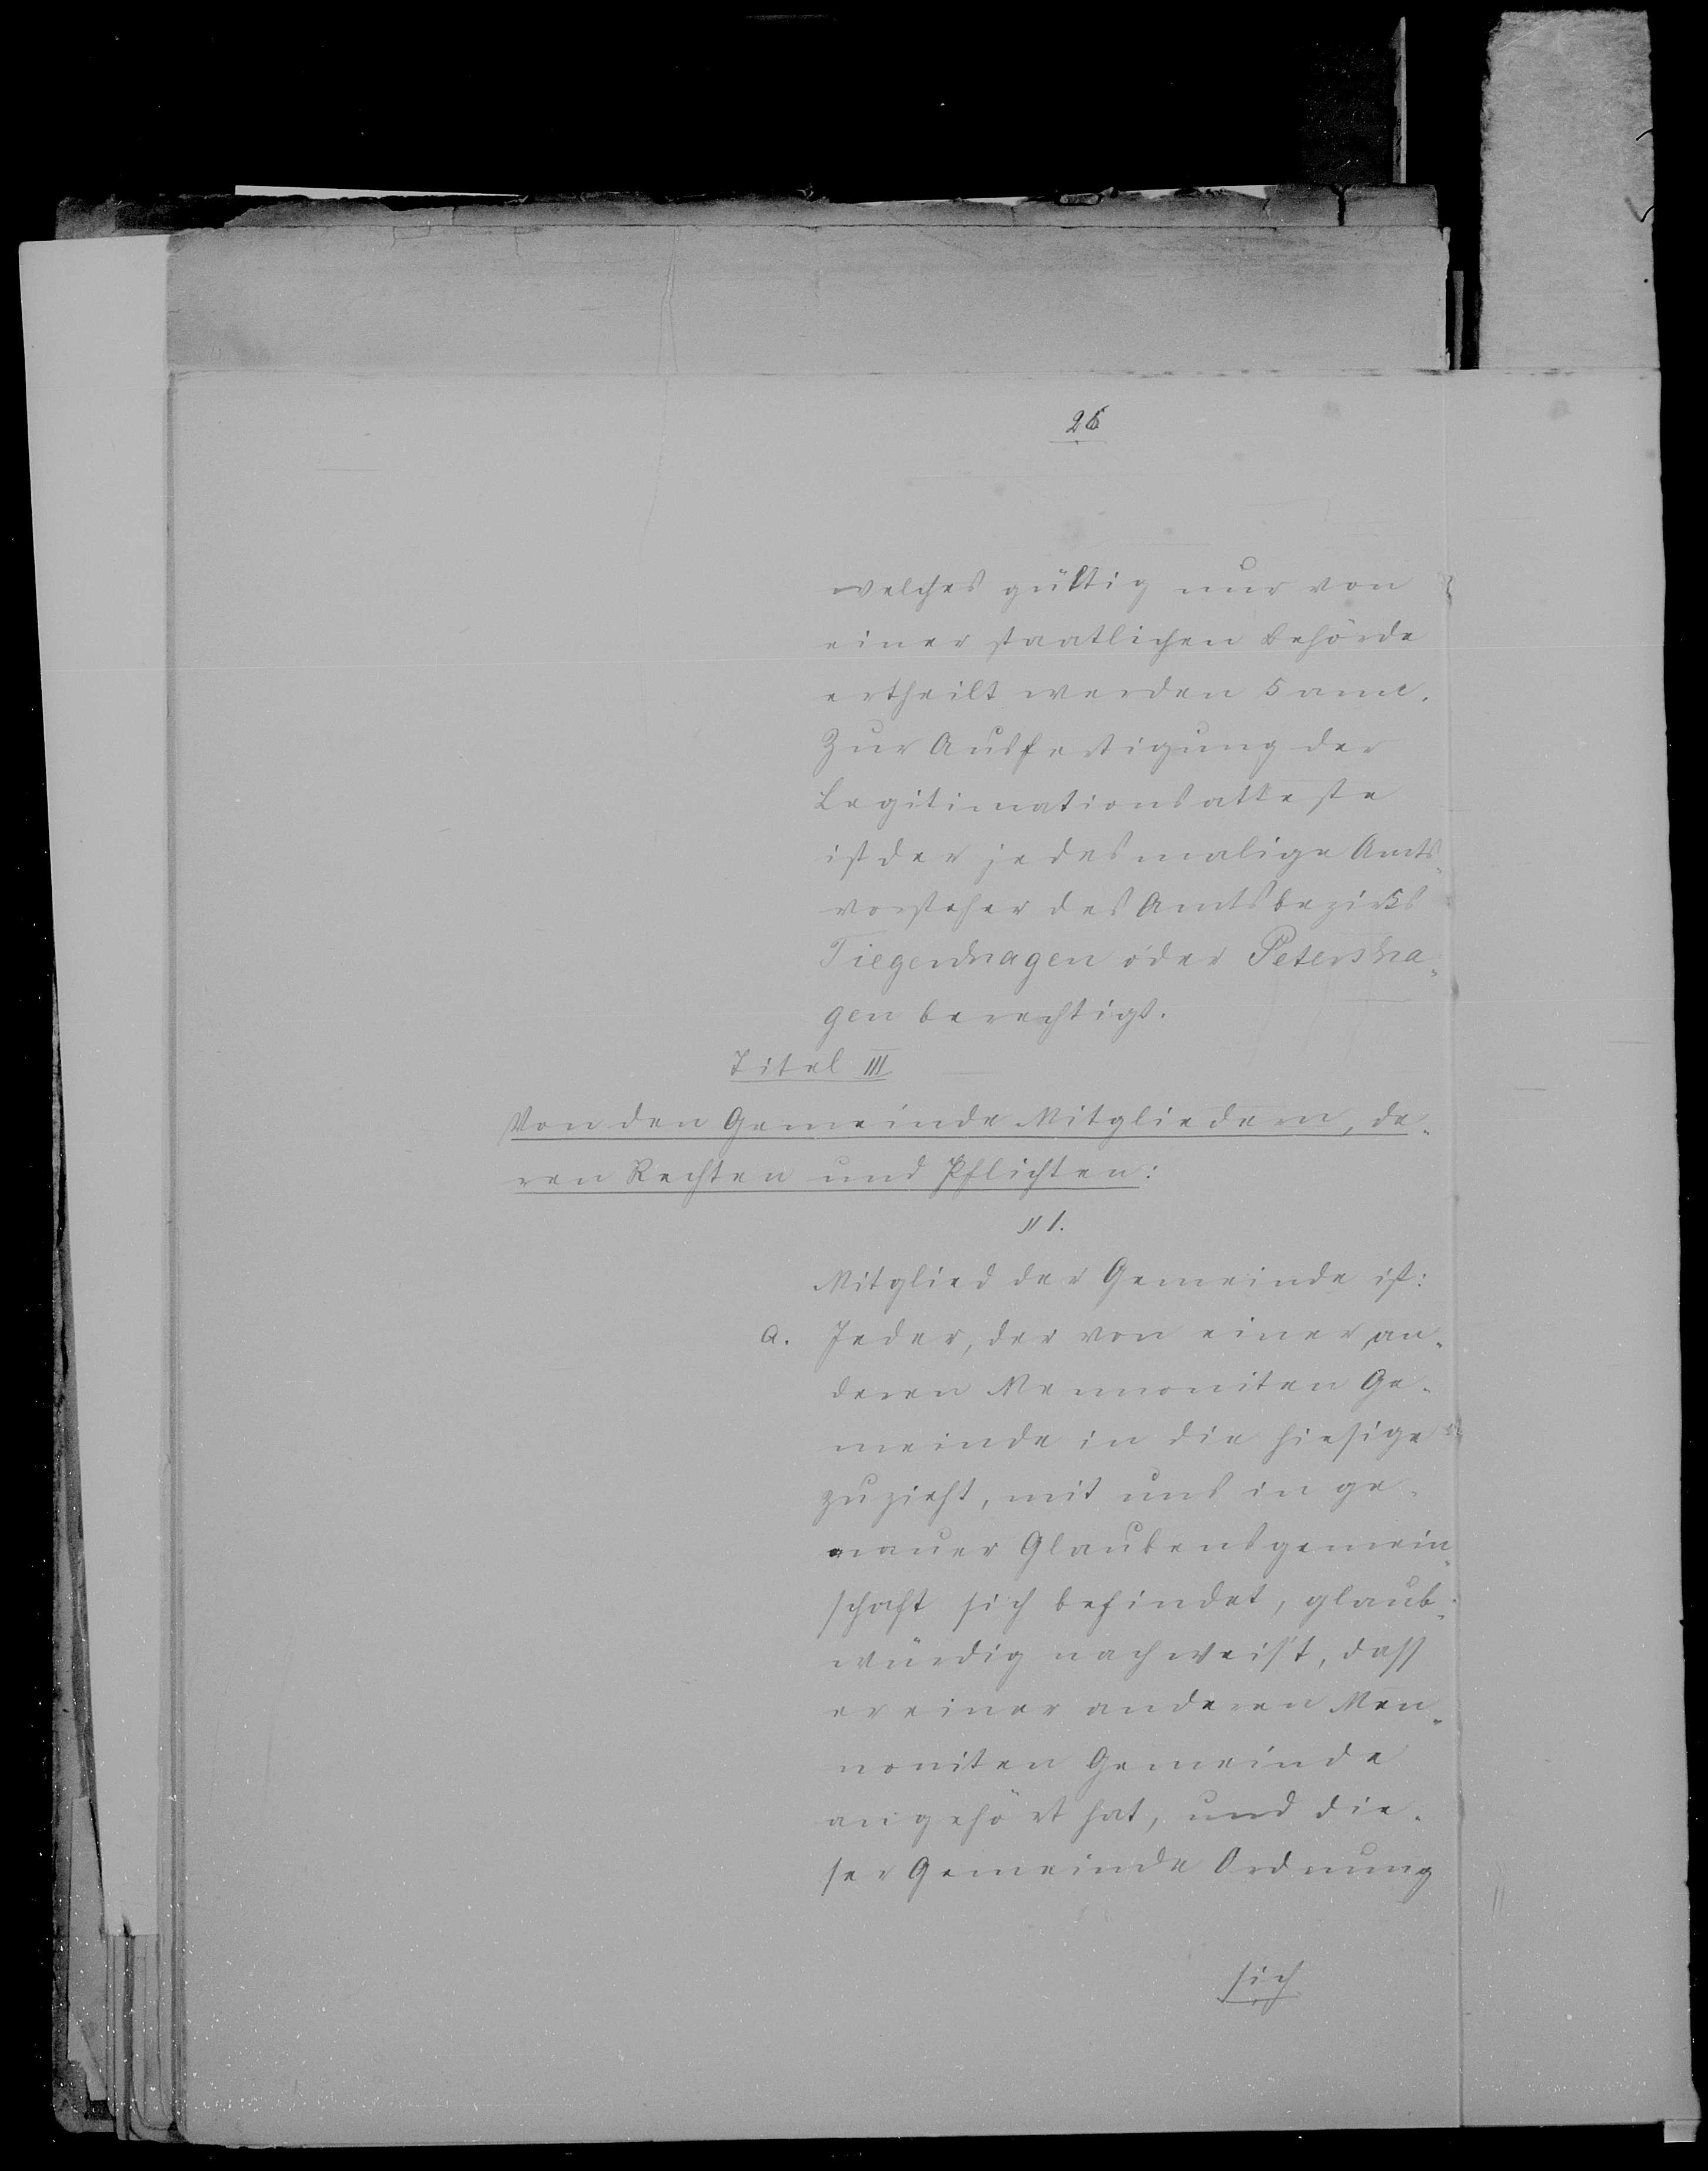 26
welches gültig nur von
einer staatlichen Behörde
ertheilt werden kann.
Zur Ausfertigung der
Legitimationsatteste
ist der jedesmalige Amts-
vorsteher des Amtsbezirks
Tiegenhagen oder Petersha-
gen berechtigt.
Titel III.
Von den Gemeinde Mitgliedern, de-
ren Rechten und Pflichten:
§ 1.
Mitglied der Gemeinde ist:
a. Jeder, der von einer an-
deren Mennoniten Ge-
meinde in die hiesige
zuzieht, mit uns in ge-
nauer Glaubensgemein-
schaft sich befindet, glaub-
würdig nachweist, dass
er einer anderen Men-
noniten Gemeinde
angehört hat, und die-
ser Gemeinde Ordnung
sich